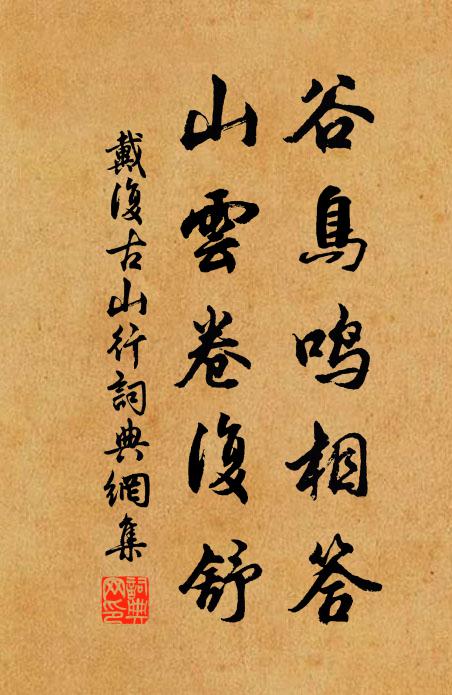 谷鳥鳴相答
山雲卷復舒
戴復古山行詞典網集
詞典網印